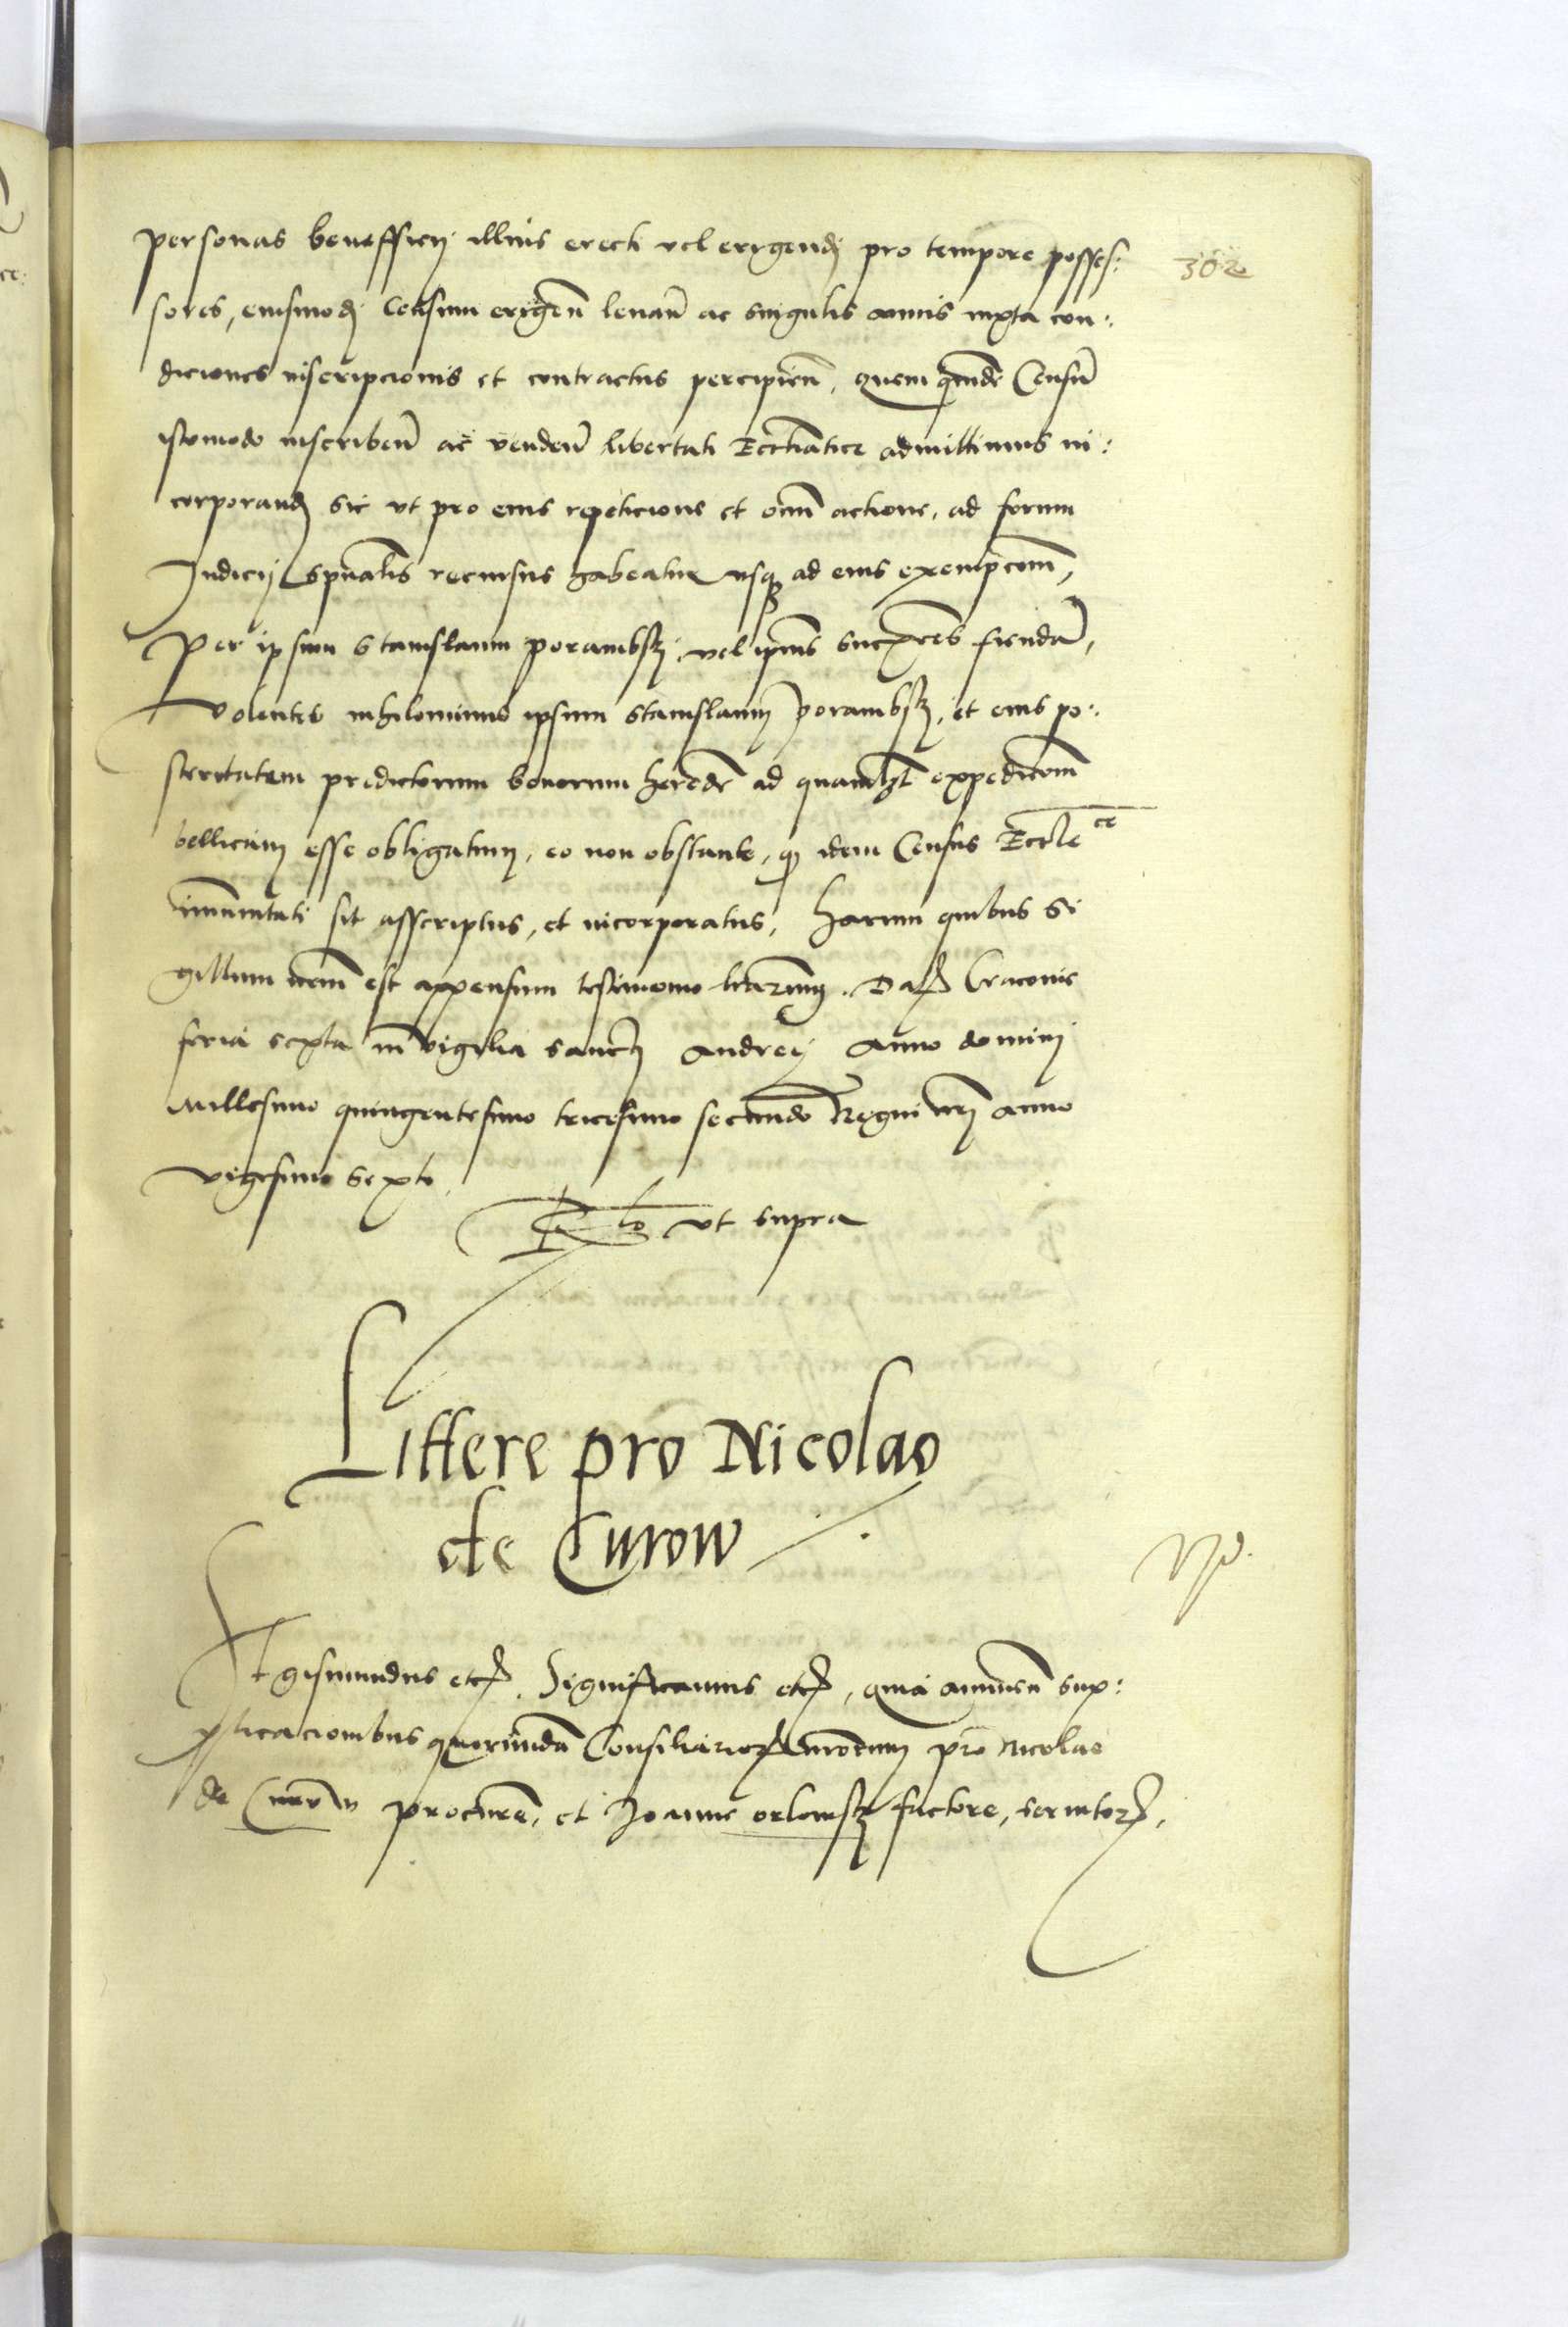 personas benefficij illius erecti vel erigendj pro tempore posses:
302
sores, eiusmodj Censum erigen̄ levan̄ ac singulis annis iuxta con:
diciones inscripcionis et contractus percipien̄, quem quidē Censū
istomodo inscriben̄ ac venden̄ libertati Eccl̄iastice admittimus in:
corporandj sic vt pro eius repeticione et omī actione, ad forum
Judicij sp̄ualis recursus habeatur usq ad eius exempcōm,
Per ipsum Stanislaum porambskj, vel ip̄ius succ̄res fiendā,
Volentes nihilominus ipsum Stanislaum porambskj, et eius po:
steritatem predictorum bonorum heredē ad quamlꝫt expedicōm
bellicam esse obligatum, eo non obstante, qꝫ idem Census Eccl̄ce
immunitati sit asscriptus, et incorporatus, Harum quibus Si
gillum nr̄m est appensum testimonio l̄rarum. Datꝭ Cracovie
feria sexta in vigilia sanctj Andreę Anno dominj
Millesimo quingentesimo tricesimo secundo Regni nr̄j anno
vigesimo sexto.
Rlo vt supra
Littere pro Nicolao
de Curow
Sigismundus etcꝭ. Significamus etcꝭ, quia annuen̄ sup:
plicacionibus quorundā Consiliarioꝝ nr̄orum pro Nicolao
de Curow procurē, et Joanne orlowskj factore, servitoꝝ,